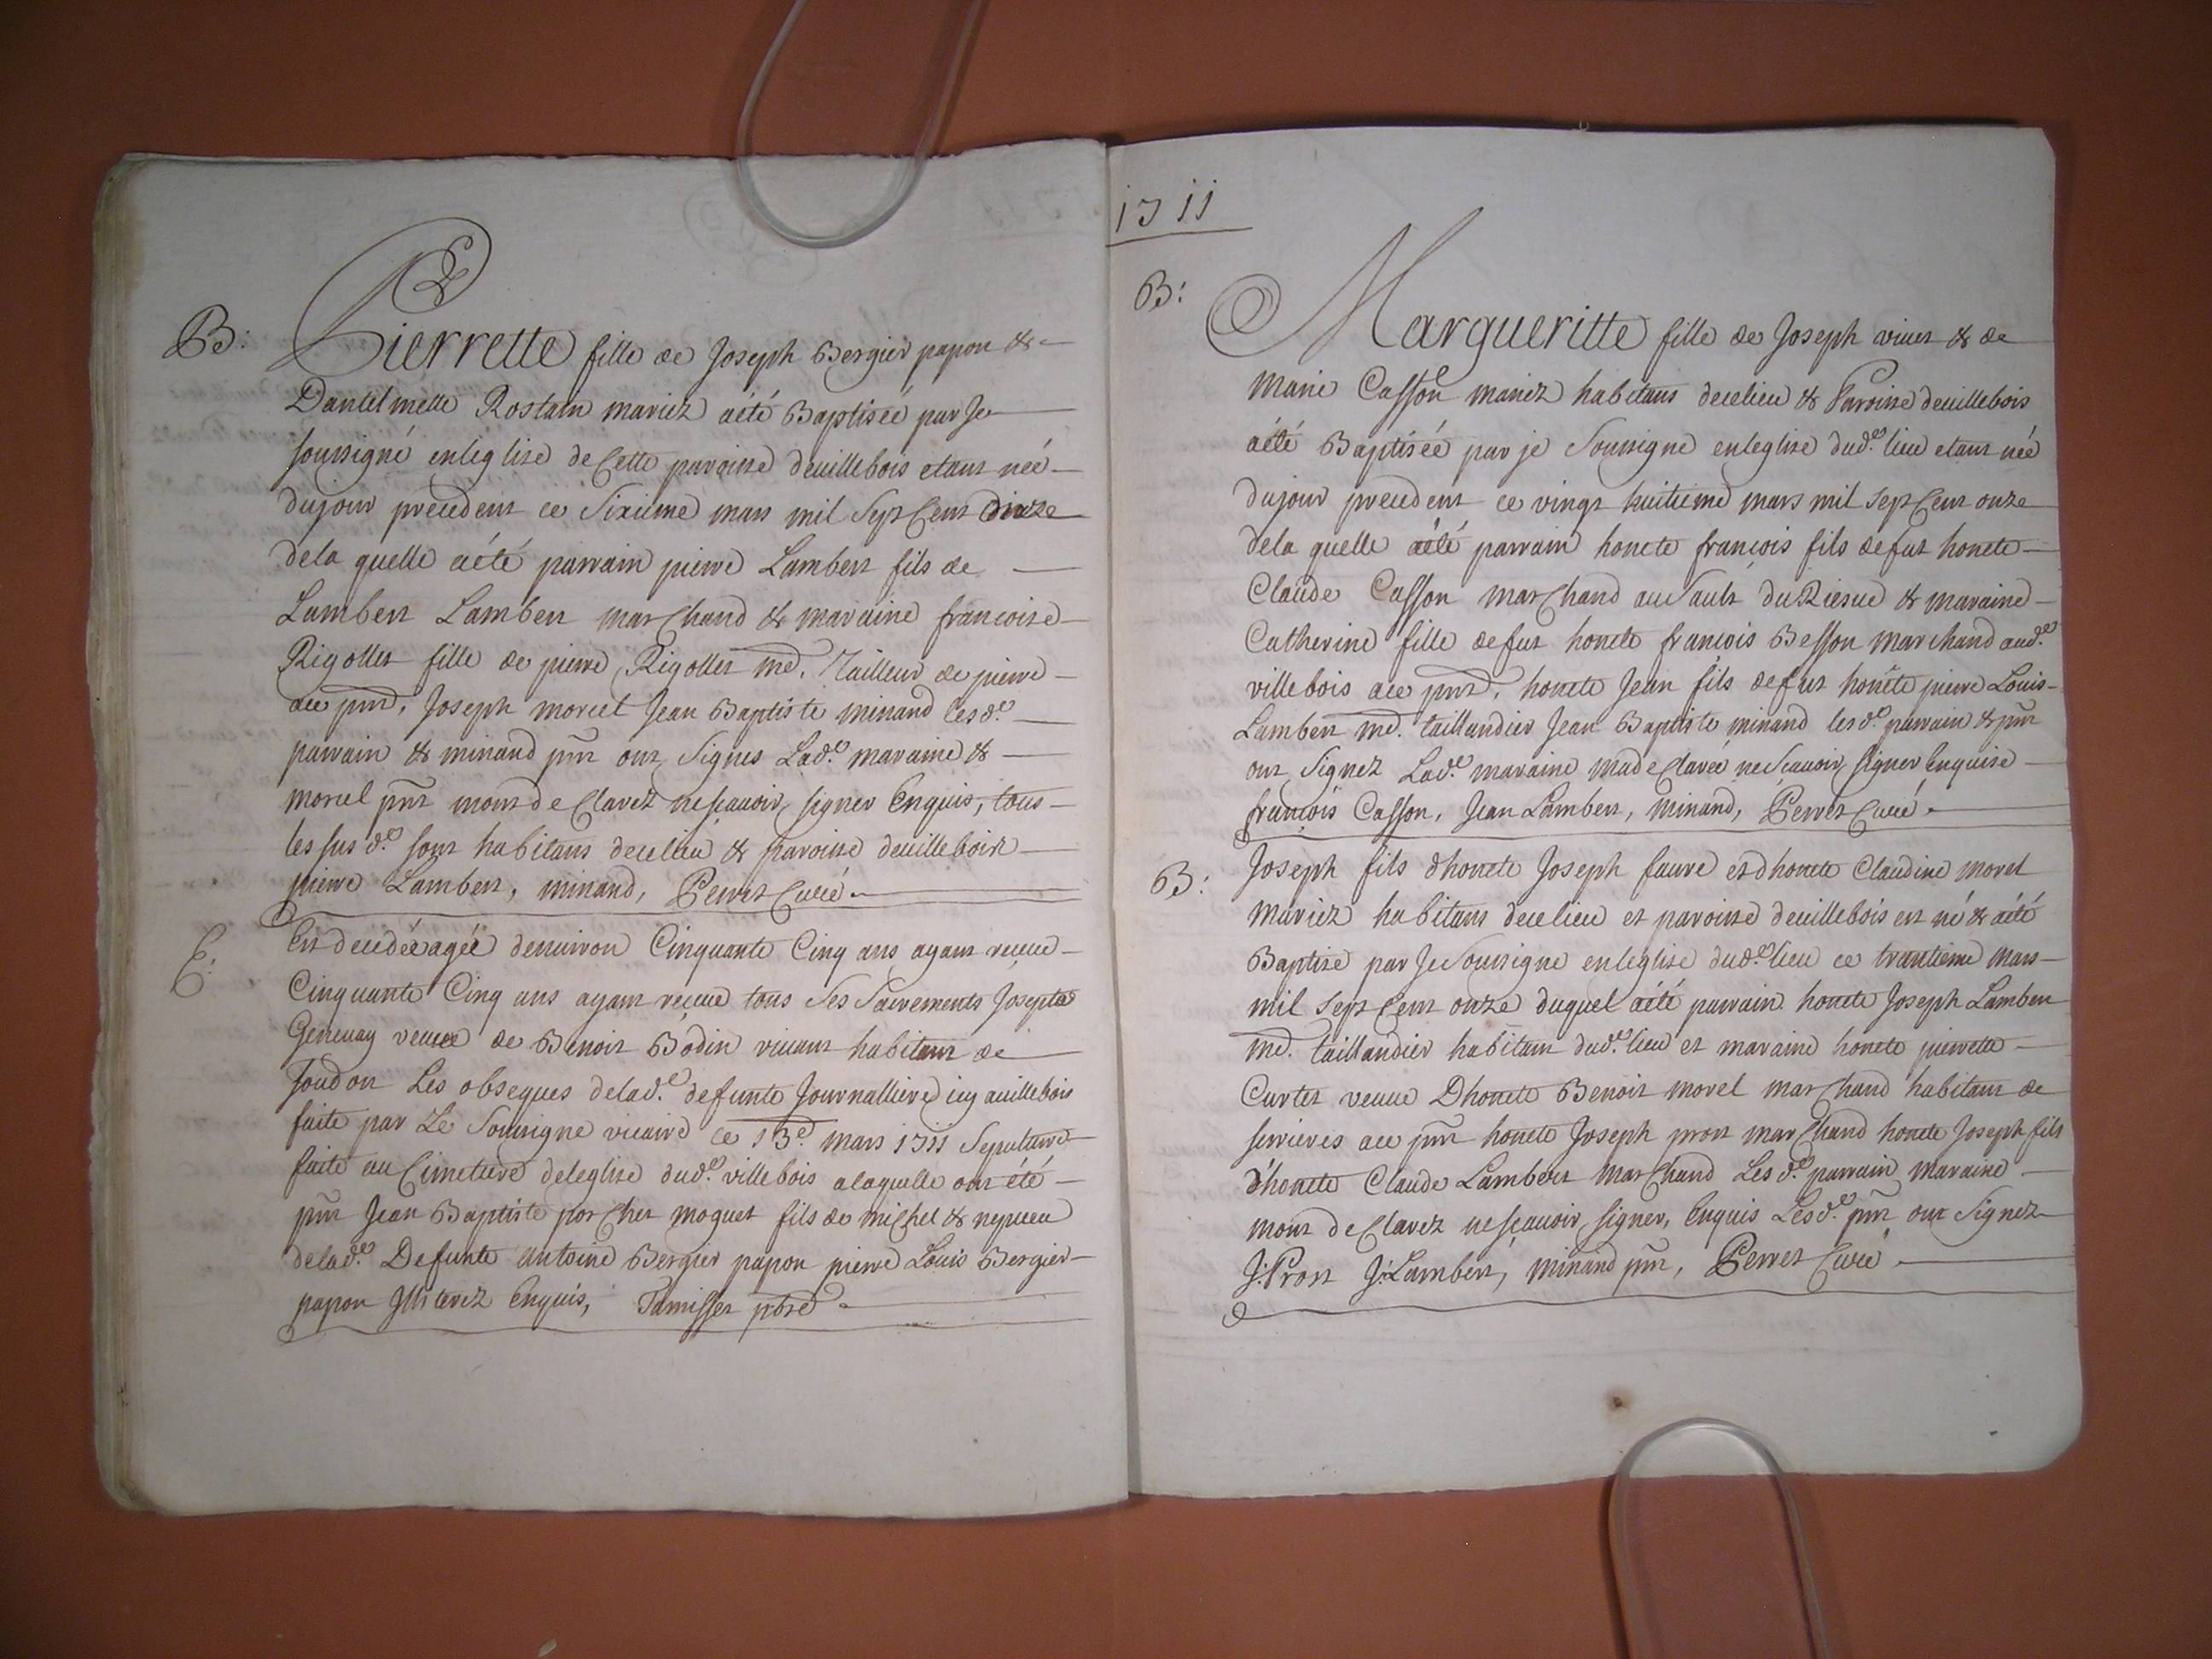 B: Pierrette fille de Joseph Bergier papon &
Dantelmette Rostain mariez aété Baptiseé par Je
soussigné enleglise de Cette paroisse deuillebois etant neé
dujour precedent ce Sixieme mars mil Sept Cent onze
dela quelle aété parrain pierre Lambert fils de
Lambert Lambert marChand & maraine francoise
Rigollet fille de pierre Rigollet md. Tailleur de pierre
ace pnt, Joseph morel Jean Baptiste minand lesd.
parrain & minand pnt ont Signes Lad.e maraine &
morel pnt mont deClarez nesçauoir signer Enquis, tous
les susd.s sont habitans decelieu & paroisse deuillebois
pierre Lambert, minand, Perret Curé
E: Est decedéé ageé denuiron Cinquante Cinq ans ayant recue
Cinquante Cinq ans ayant recue tous Ses Sacrements Josepte
Geneuay veuue de Benoit Bodin viuant habitant de
Soudon Les obseques delad.e defunte Journalliere icy auillebois
faite par Le Soussigne vicaire ce 13.e mars 1711 Sepulture
faite au Cimetiere deleglise dud. villebois alaquelle ont été
pnt Jean Baptiste porCher moguet fils de miChel & nepueu
delad.e Defunte antoine Bergier papon pierre Louis Bergier
papon Illiterez Enquis, Tamisset pbre
1711
B: Margueritte fille de Joseph viuet & de
marie Casson mariez habitans decelieu & Paroisse deuillebois
aété Baptiséé par je Soussigne enleglise dud. lieu etant née
dujour precedent ce vingt huitieme mars mil sept Cent onze
dela quelle aété parrain honete françois fils defut honete
Claude Casson marChand au Sault du Riesne & maraine
Catherine fille defut honete francois Besson marchand aud.
villebois ace pnt, honete Jean fils defut honéte pierre Louis
Lambert md. taillandier Jean Baptiste minand lesd. parrain & pnt
ont Signez Lad.e maraine madeClareé nesçauoir signer Enquise
françois Casson, Jean Lambert, minand, Perret Curé
B: Joseph fils dhonete Joseph faure et dhonete Claudine morel
mariez habitans decelieu et paroisse deuillebois est né & aété
Baptise par Je Soussigne enleglise dud. lieu ce trantieme mars
mil sept Cent onze duquel aété parrain honete Joseph Lambert
md. taillandier habitant dud. lieu et maraine honete pierrette
Curtet veuue Dhonete Benoit morel marChand habitant de
serrieres ace pnt honete Joseph pront marChand honete Joseph fils
dhonete Claude Lambert marChand Lesd. parrain maraine
mont deClarez nesçauoir signer, Enquis Lesd. pnt ont Signez
J: Pront J: Lambert, minand pnt, Perret Curé